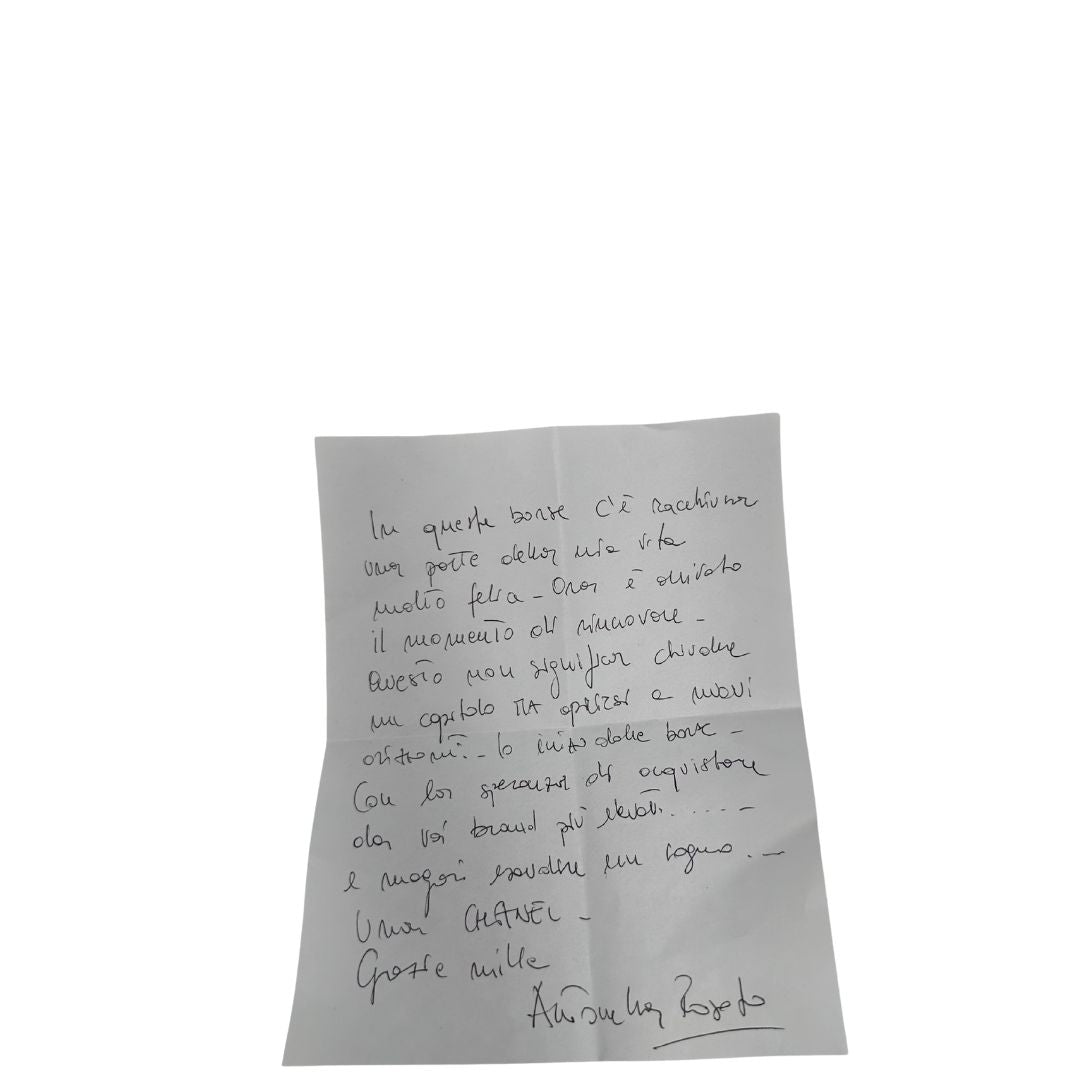 In queste borse c'è racchiusa
una parte della mia vita
molto felice - Ora è arrivato
il momento di rinnovare -
Questo non significa chiudere
un capitolo MA aprirsi a nuovi
orizzonti. - Io inizio dalle borse -
Con la speranza di acquistare
da voi brand più elevati..... -
e magari esaudire un sogno. -
Una CHANEL -
Grazie mille
Antonella Rosato